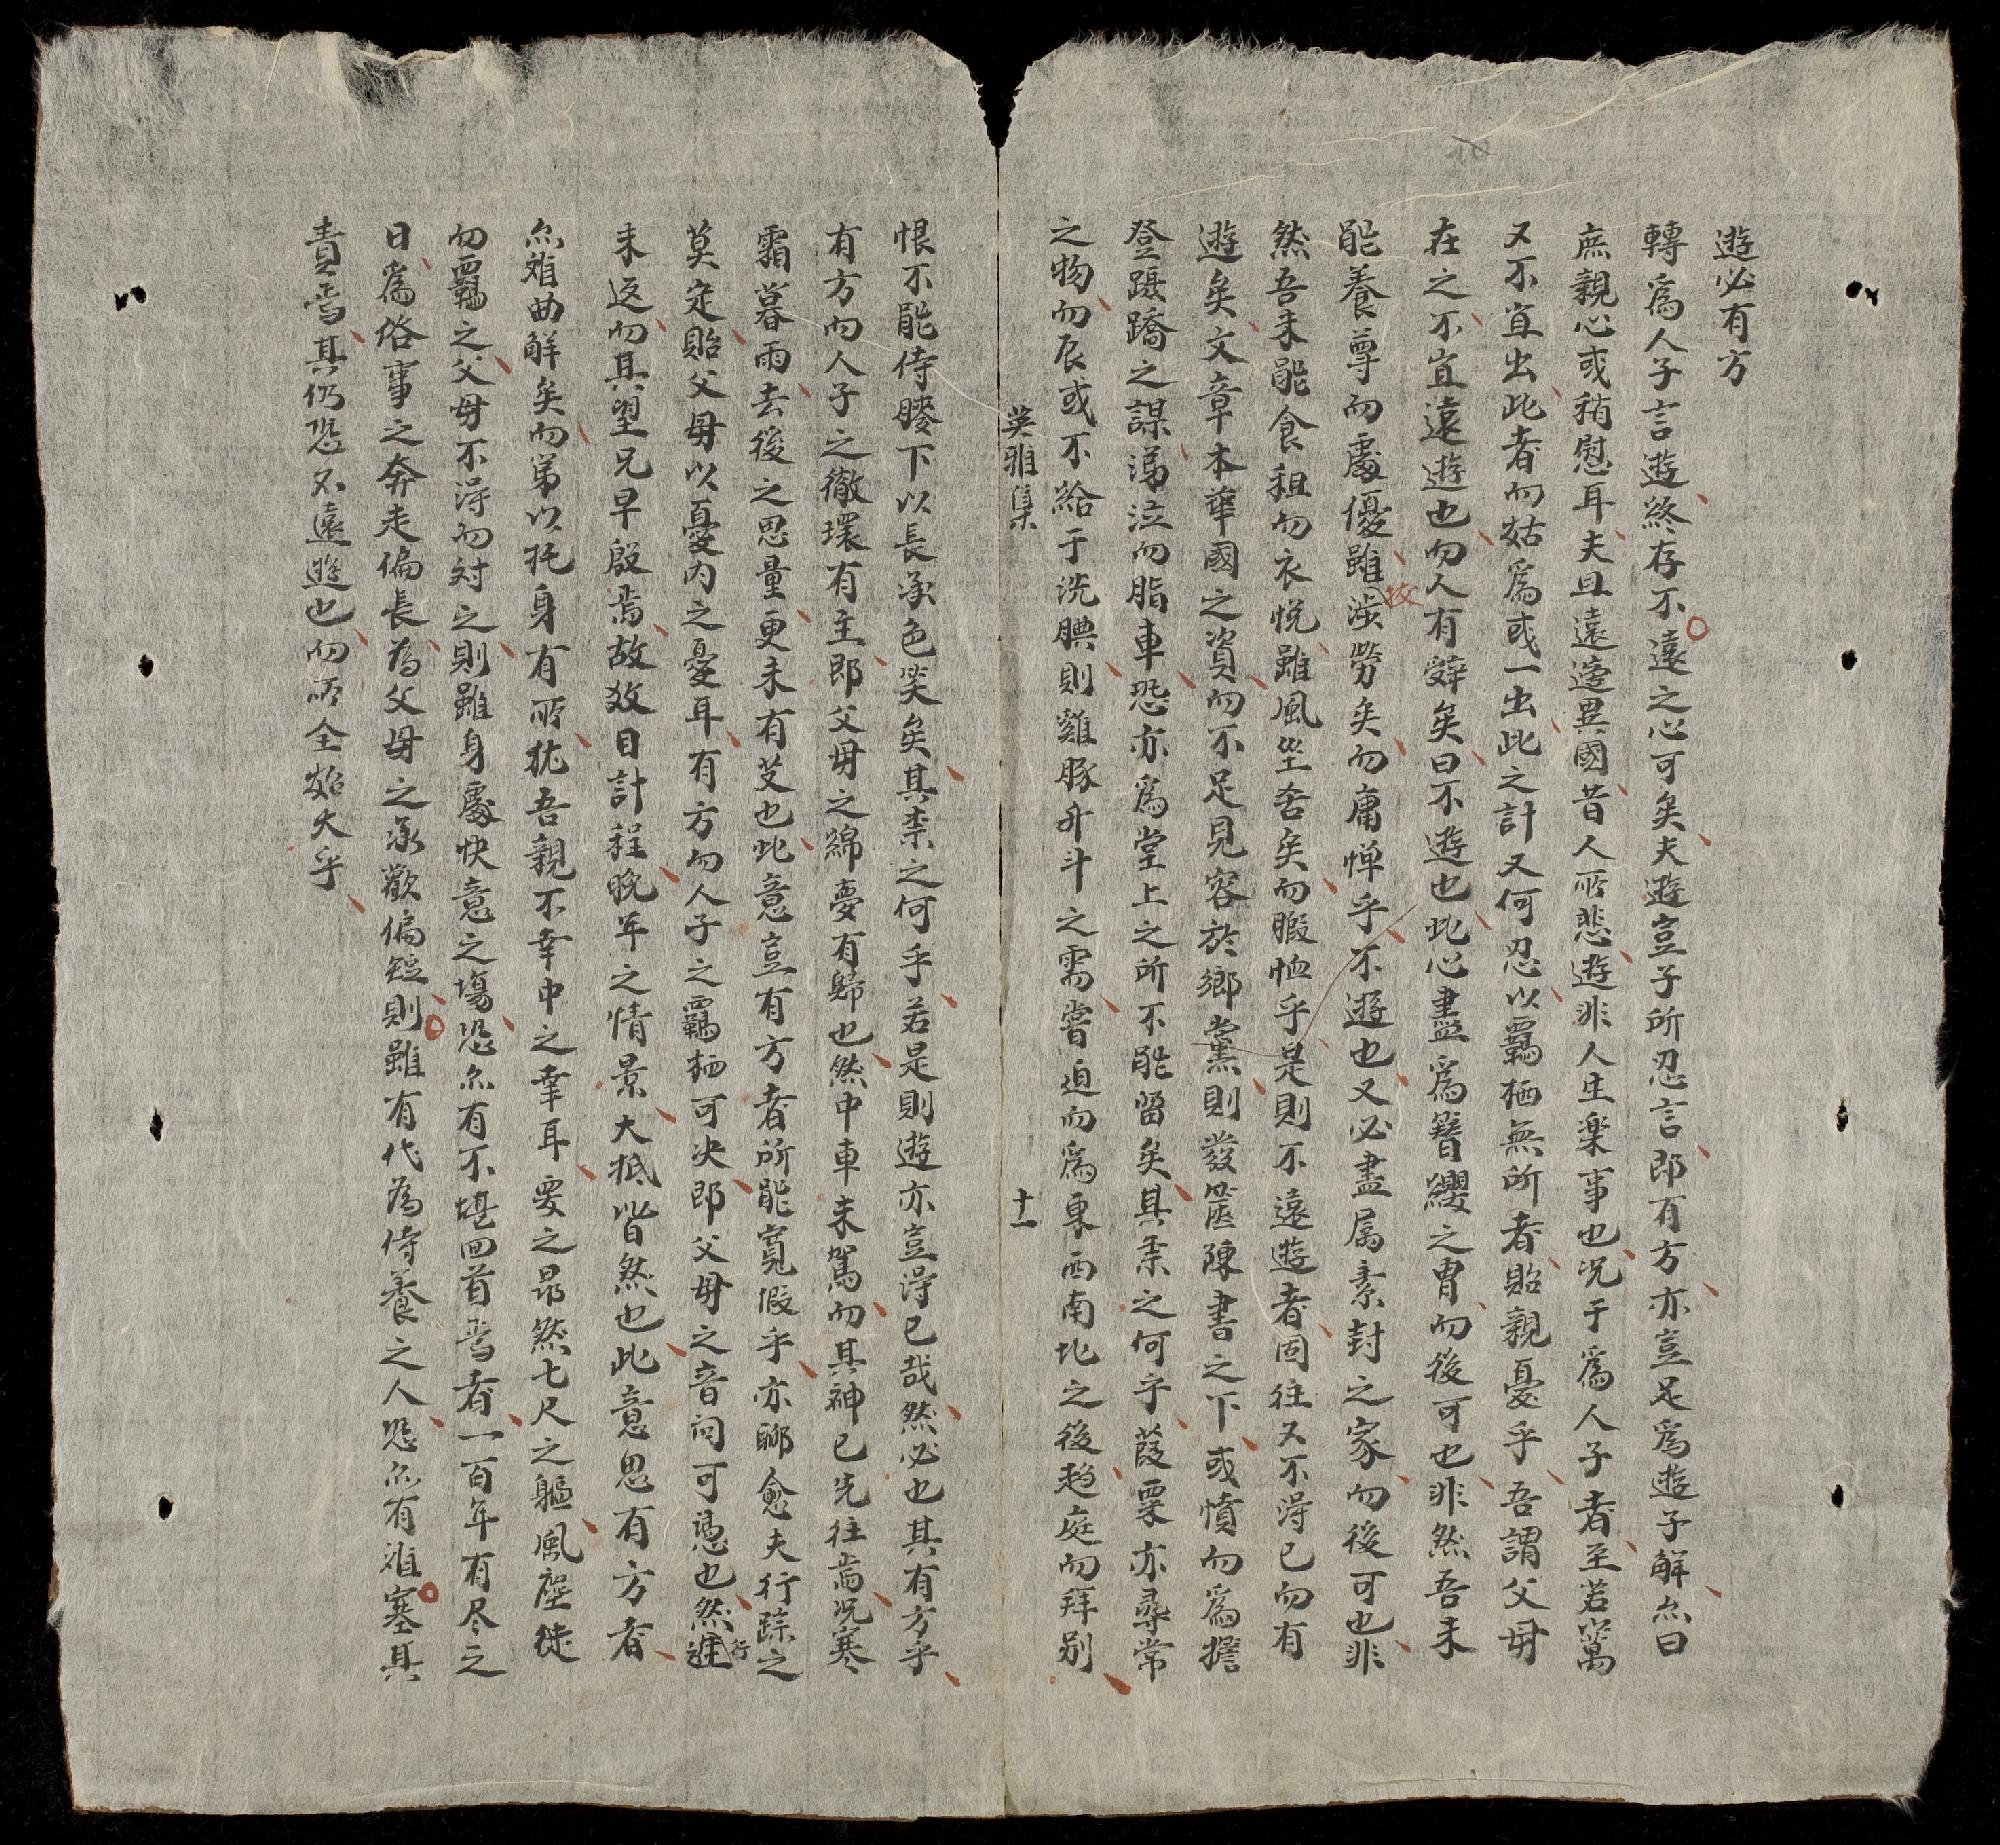 遊必有方
轉爲人子言遊終存不遠之心可矣夫遊豈子所忍言即有方亦豈足爲遊子解亽曰
庶親心或稍慰耳夫且遠邊異國昔人所悲遊非人生楽事也况于爲人子者至若萬
又不宜出此者而姑爲或一出此之計又何忍以羈栖無所者貽親憂乎吾謂父母
在之不宜遠遊也而人有辭矣曰不遊也此心盡爲簪纓之胄而後可也非然吾未
能養尊而處優雖涉勞矣而庸憚乎不遊也又必盡属素封之家而後可也非
然吾未能食租而衣悦雖風坐舍矣而暇恤乎是則不遠遊者固往又不淂已而有
遊矣文章本華國之資而不足見容於鄉黨則發篋陳書之下或憤而爲擔
登躡蹻之謀涕泣而脂車恐亦爲堂上之所不能留矣其柰之何乎菽粟亦尋常
之物而辰或不給于洗腆則雞豚升斗之需嘗迫而爲東西南北之後趋庭而拜别
英雅集
十一
恨不能侍膝下以長承色笑矣其柰之何乎若是則遊亦豈淂已哉然必也其有方乎
有方而人子之徹環有主即父母之綿夢有歸也然中車未駕而其神已先往焉况寒
霜暮雨去後之思量更未有艾也此意豈有方者所能寬假乎亦聊愈夫行踪之
莫定貽父母以憂内之憂耳有方而人子之羈栖可决即父母之音问可憑也然進行
未返而其望兄早殷焉故效日計程晚年之情景大抵皆然也此意思有方者
亽难曲解矣而第以托身有所犹吾親不幸中之幸耳要之昂然七尺之軀風塵徒
而羈之父母不淂而对之則雖身處快意之塲恐亽有不堪回首焉者一百年有尽之
日爲俗事之奔走偏長為父母之承歡偏短則雖有代為侍養之人恐亽有难塞其
責焉其仍恐不遠遊也而所全始大乎